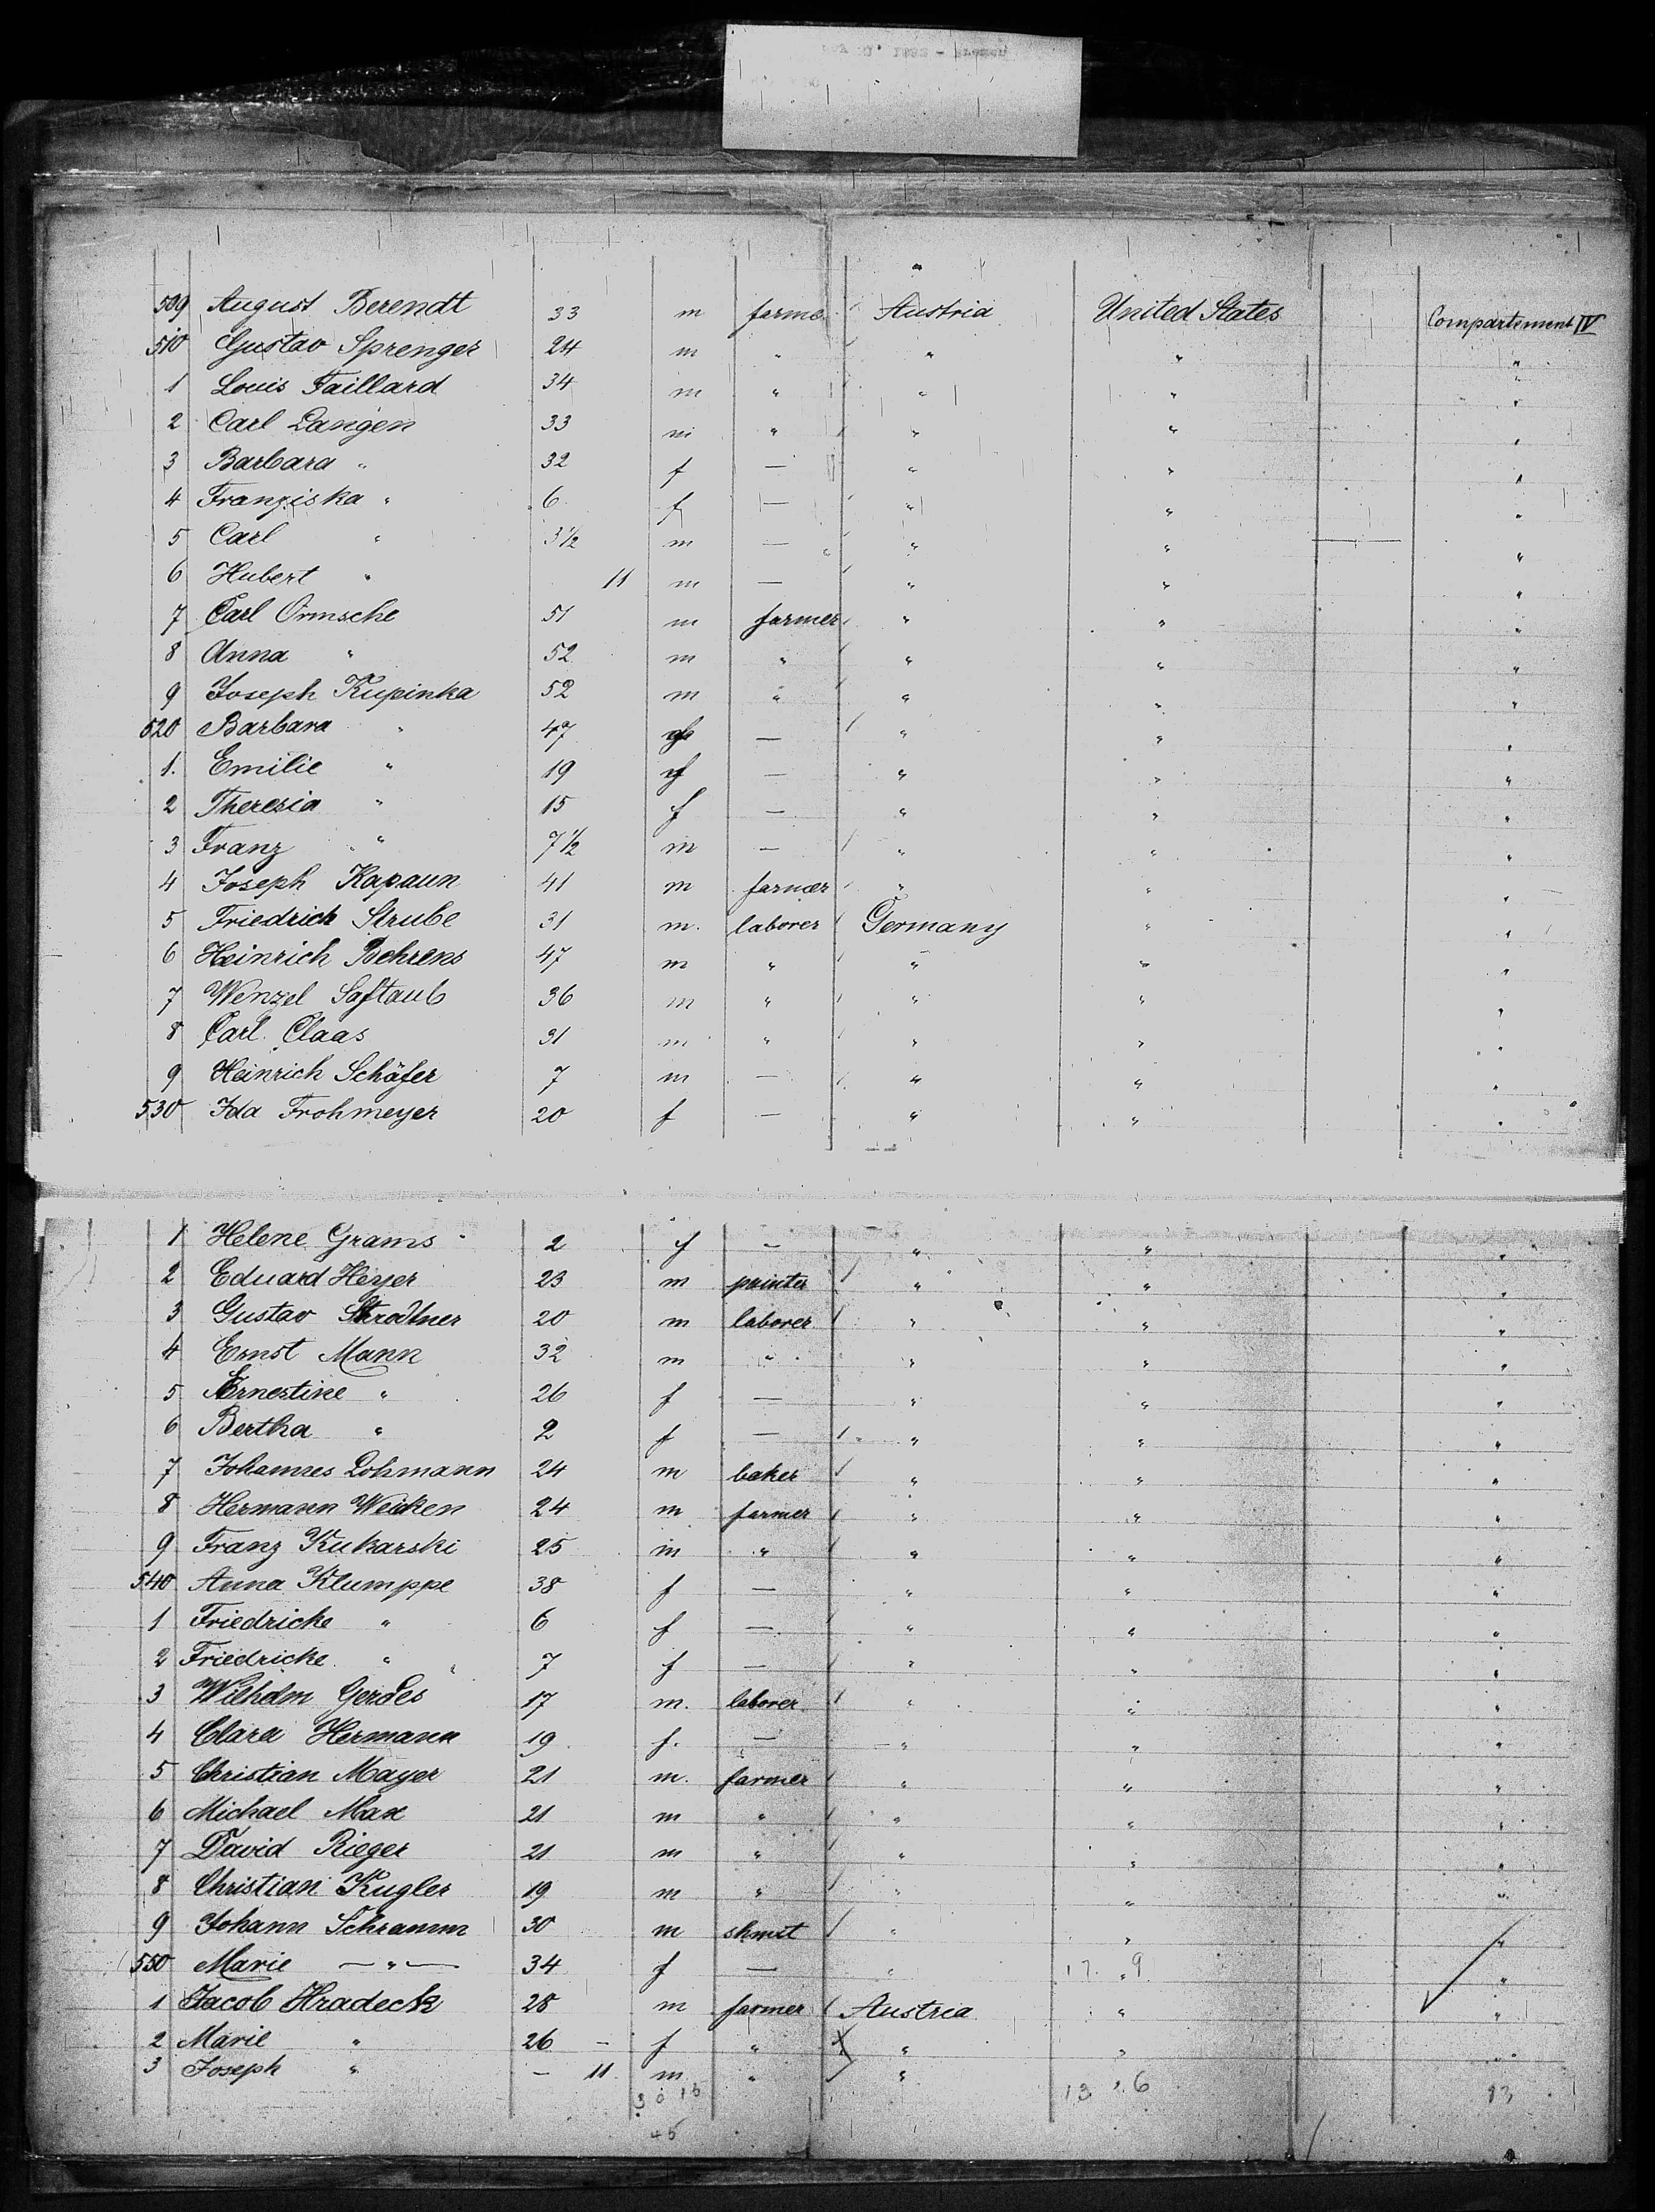 509 August Berendt 33 m farmer Austria United States Compartiment IV
510 Gustav Sprenger 24 m " " " "
1 Louis Taillard 34 m " " " "
2 Carl Langen 33 m " " " "
3 Barbara " 32 f — " " "
4 Franziska " 6 f — " " "
5 Carl " 3½ m — " " "
6 Hubert " 11 m — " " "
7 Carl Ormsche 51 m farmer " " "
8 Anna " 52 m " " " "
9 Joseph Kupinka 52 m " " " "
520 Barbara " 47 f — " " "
1. Emilie " 19 f — " " "
2 Theresia " 15 f — " " "
3 Franz " 7½ m — " " "
4 Joseph Kapaun 41 m farmer " " "
5 Friedrich Strube 31 m. laborer Germany " "
6 Heinrich Behrens 47 m " " " "
7 Wenzel Saftaub 36 m " " " "
8 Carl Claas 31 m " " " "
9 Heinrich Schäfer 7 m — " " "
530 Ida Frohmeyer 20 f — " " "
1 Helene Grams 2 f — " " "
2 Eduard Heyer 23 m printer " " "
3 Gustav Strodtner 20 m laborer " " "
4 Ernst Mann 32 m " " " "
5 Ernestine " 26 f — " " "
6 Bertha " 2 f — " " "
7 Johannes Lohmann 24 m baker " " "
8 Hermann Weiken 24 m farmer " " "
9 Franz Kukarski 25 m " " " "
540 Anna Klumppe 38 f — " " "
1 Friedricke " 6 f — " " "
2 Friedricke " 7 f — " " "
3 Wilhelm Gerdes 17 m. laborer " " "
4 Clara Hermann 19 f. — " " "
5 Christian Mayer 21 m. farmer " " "
6 Michael Max 21 m " " " "
7 David Rieger 21 m " " " "
8 Christian Kugler 19 m " " " "
9 Johann Schramm 30 m shmit " " "
550 Marie —"— 34 f — " 17. " 9 "
1 Jacob Hradeck 28 m farmer Austria " "
2 Marie " 26 – f " " " "
3 Joseph " – 11 m " "
13 " 6 13
45